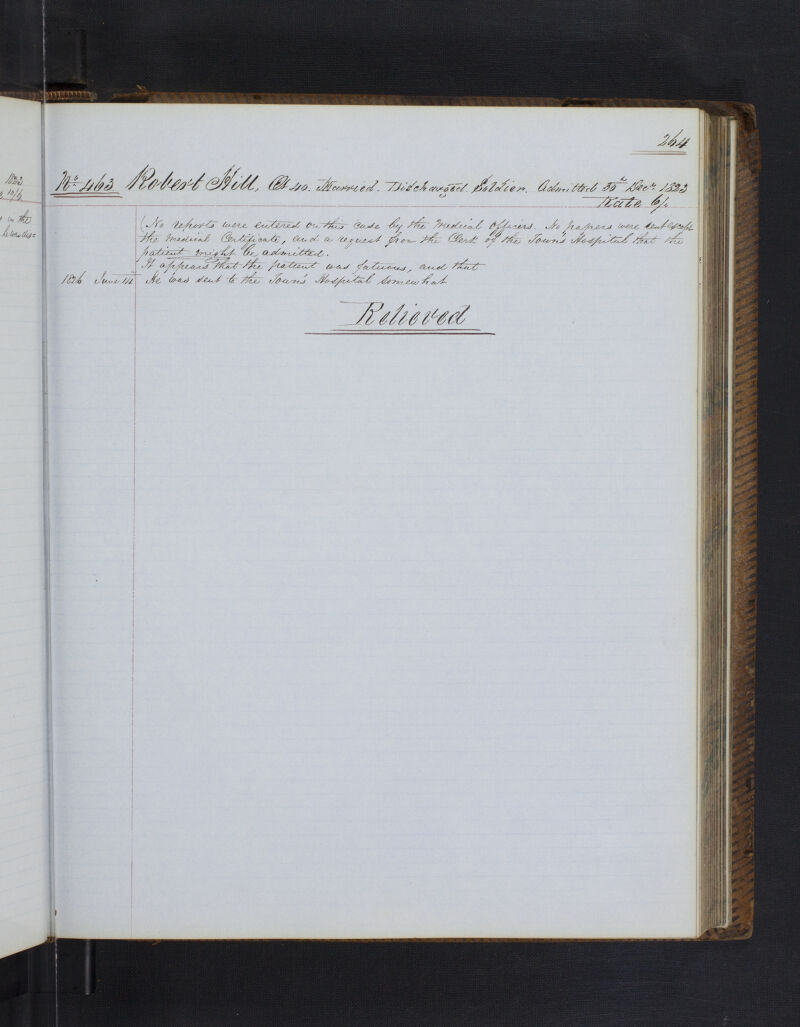 264
No. 463 Robert Hill, Æt 40. Married. Discharged Soldier. Admitted 30th Decr. 1823
Rate 6/
(No reports were entered on this case by the Medical Officers. No papers were sent except
the Medical Certificate, and a request from the Clerk of the Town's Hospital that the
patient might be admitted.
It appears that the patient was fatuous, and that
1826 June 14 He was sent to the Town's Hospital somewhat
Relieved